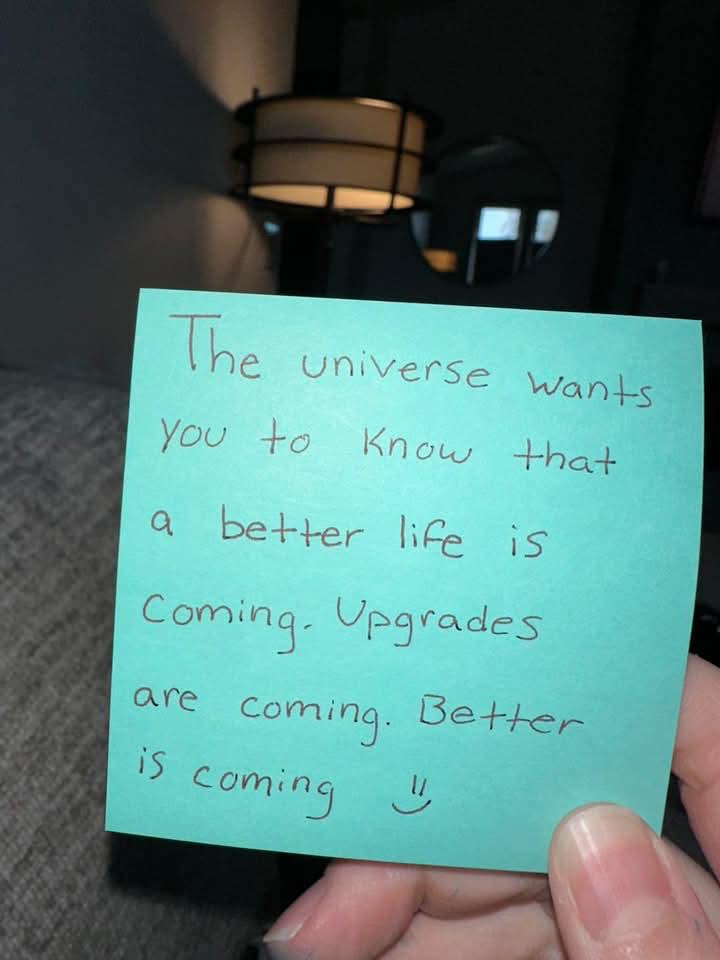 The universe wants
you to know that
a better life is
coming. Upgrades
are coming. Better
is coming